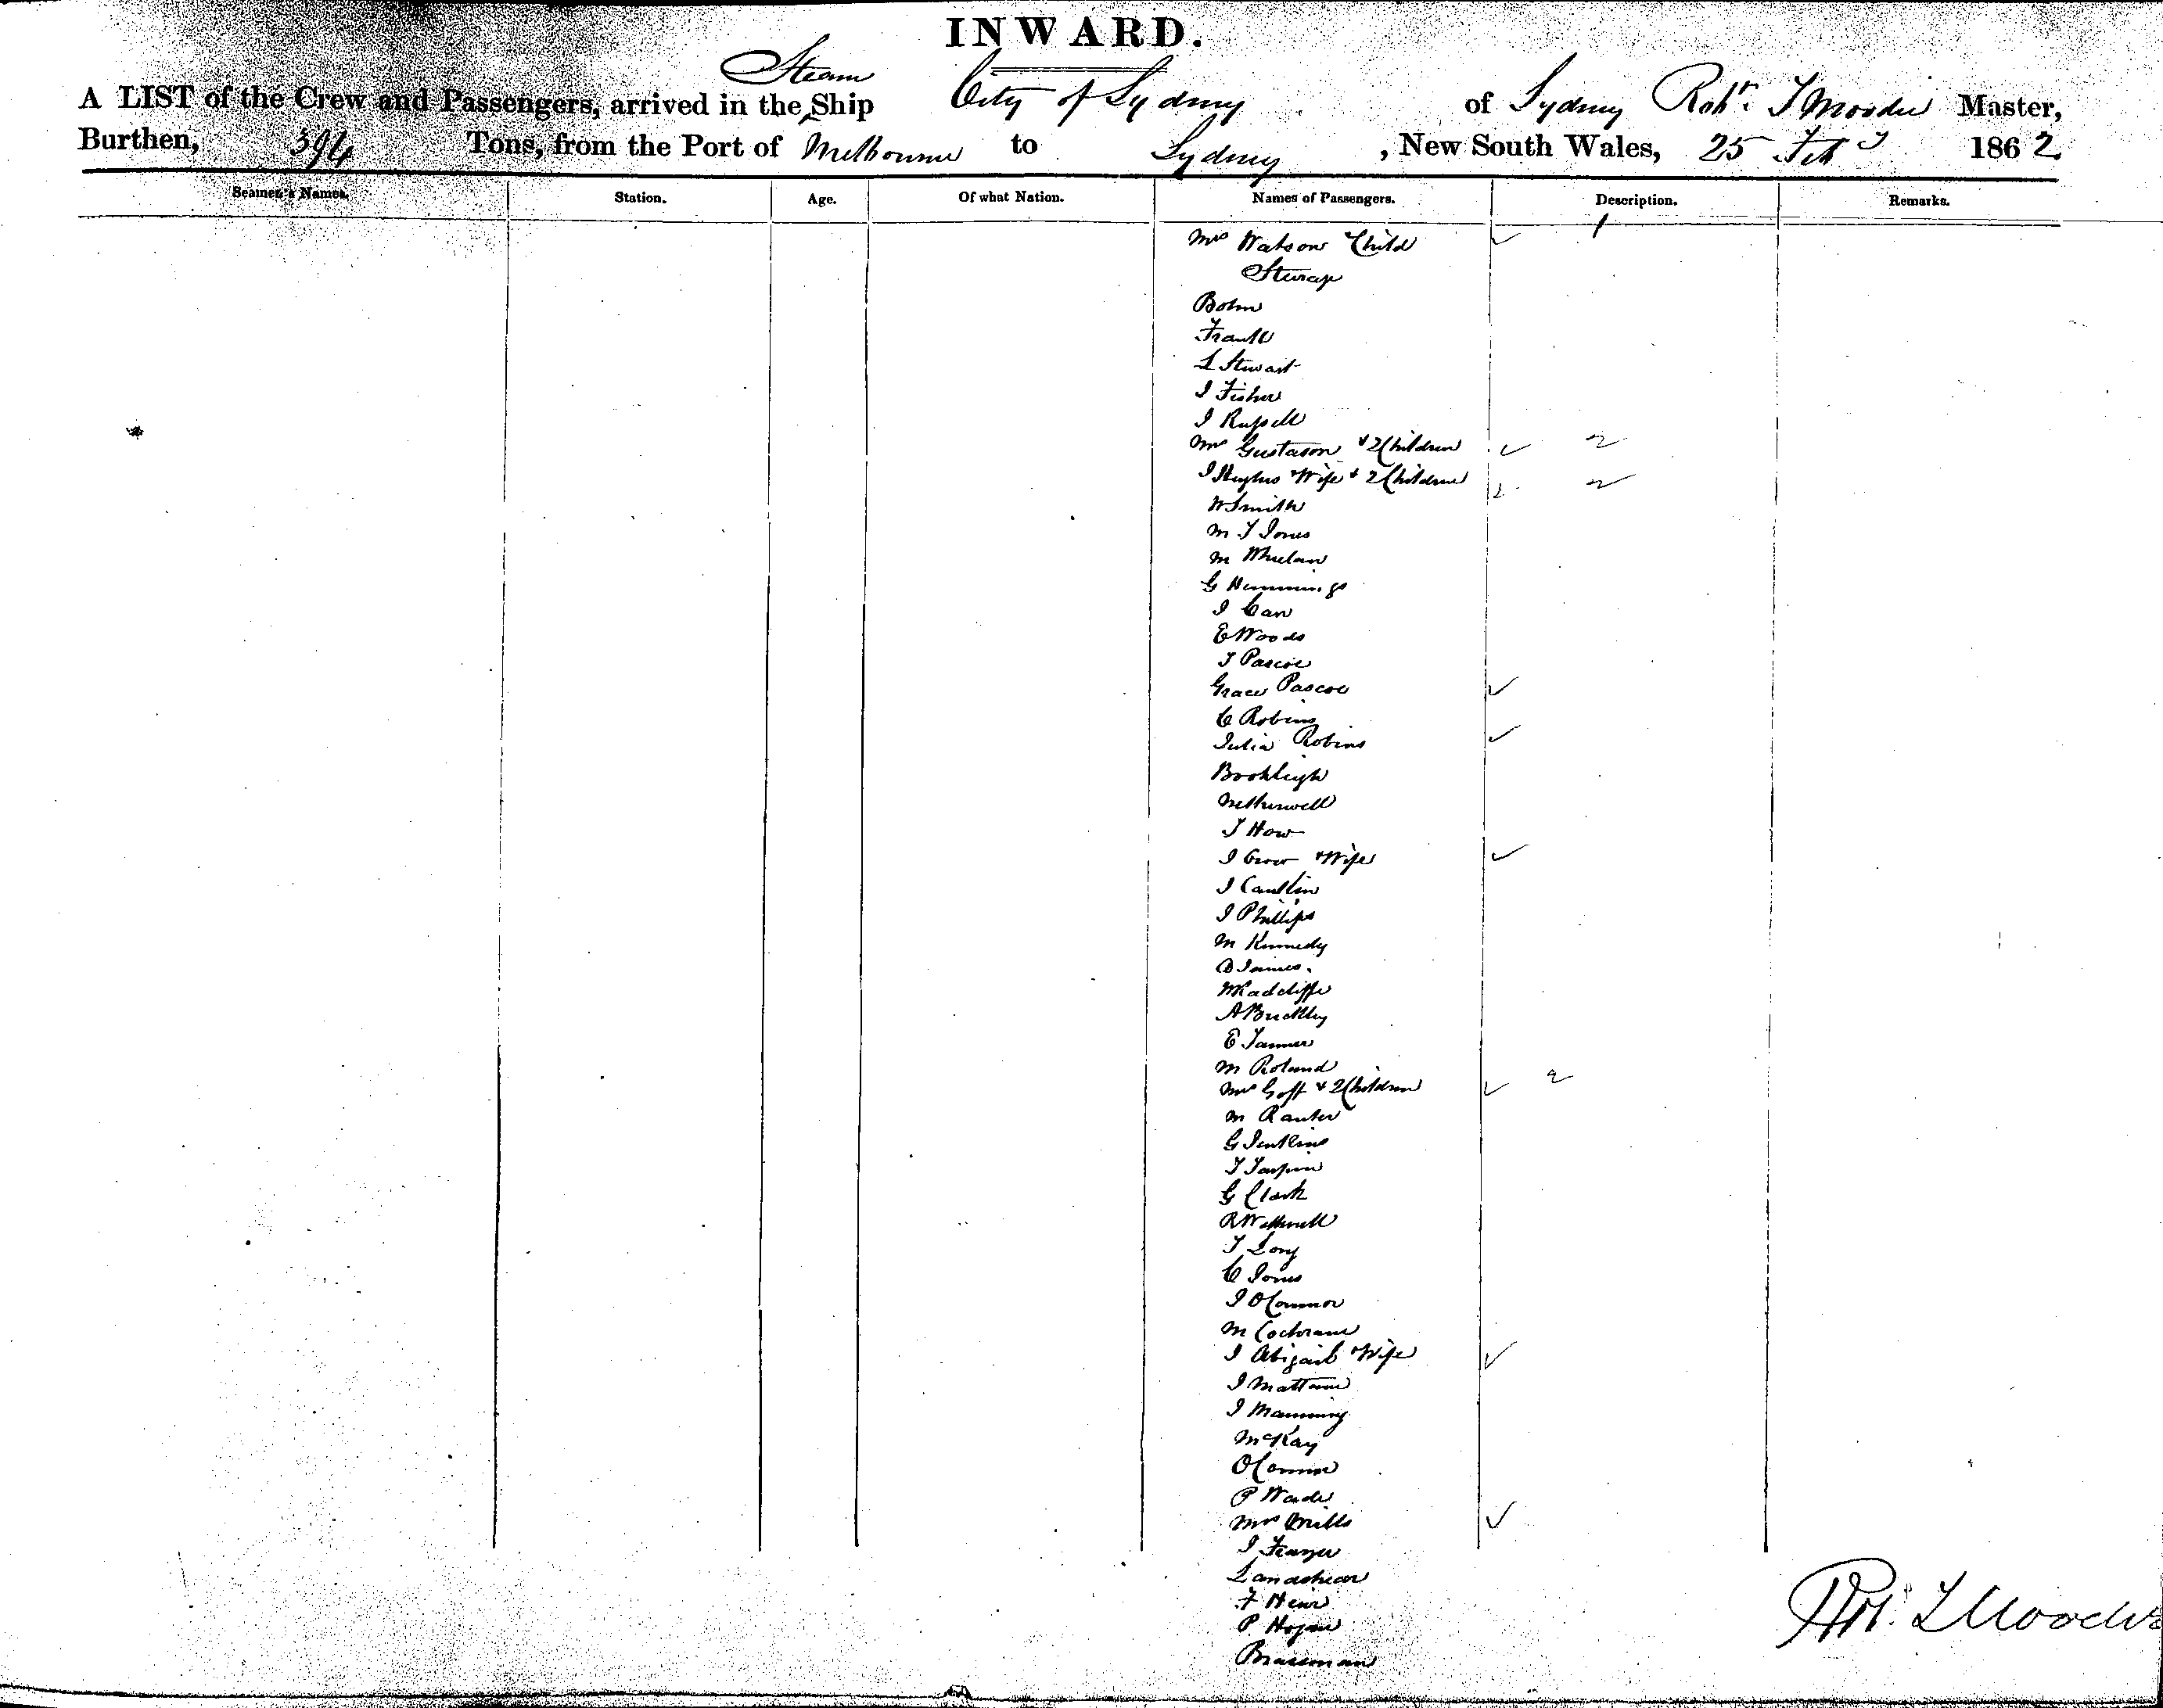 INWARD.
Steam
A LIST of the Crew and Passengers, arrived in the Ship City of Sydney of Sydney Robt. T Moodie Master,
Burthen, 394 Tons, from the Port of Melbourne to Sydney, New South Wales, 25 Feby 1862
Seamen's Names. Station. Age. Of what Nation. Names of Passengers. Description. Remarks.
Mrs Watson & Child ✓ 1
Steerage
Bohn
Frank
L Stewart
J Fisher
J Russell
Mrs Gustason & 2 Children ✓ 2
J Hughes Wife & 2 Children 2 2
W Smith
M J Jones
M Whelan
G Hemmings
J Carr
E Woods
T Pascoe
Grace Pascoe ✓
C Robins
Julia Robins ✓
Brookleigh
Netherwell
T How
J Crow & Wife ✓
J Cantlin
J Phillips
M Kennedy
D James.
W Radcliffe
A Buckley
E Tanner
M Roland
Mrs Goff & 2 Children ✓ 2
M Ranter
G Jenkins
T Tarpin
G Clark
R Wetherell
T Long
C Jones
J O'Connor
M Cochrane
J Abigail & Wife ✓
J Mattam
J Manning
McKay
O'Connor
P Wade
Mrs Mills ✓
J Frazer
Lanashear
F Hein
P. Hogan
Braseman
Robt. T Moodie